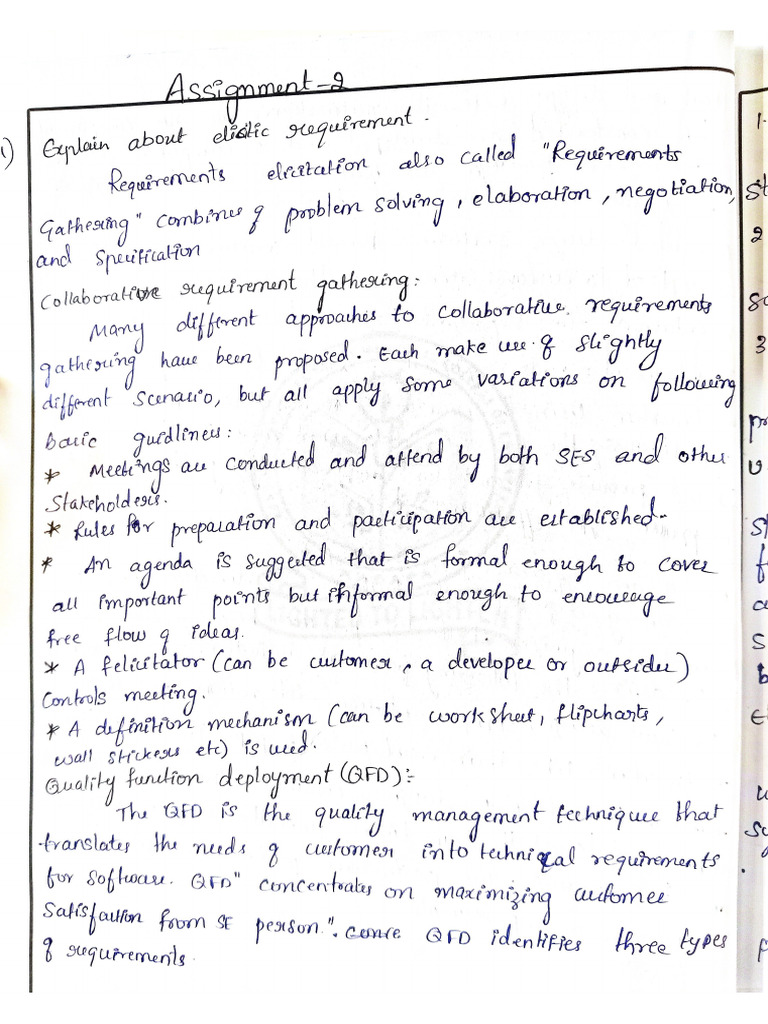 Assignment-2
1) Explain about elicitic requirement.
Requirements elicitation, also called "Requirements
Gathering" combines of problem solving, elaboration, negotiation,
and Specification
Collaborative requirement gathering:
Many different approaches to collaborative requirements
gathering have been proposed. Each make use of slightly
different Scenario, but all apply some variations on following
basic guidlines:
* Meetings are conducted and attend by both SES and other
Stakeholders.
* Rules for preparation and participation are established.
* An agenda is suggested that is formal enough to cover
all important points but informal enough to encourage
free flow of ideas.
* A felicitator (can be customer, a developer or outsider)
Controls meeting.
* A definition mechanism (can be work sheet, flipcharts,
wall stickers etc) is used.
Quality function deployment (QFD):-
The QFD is the quality management technique that
translates the needs of customer into technical requirements
for Software. QFD" concentrates on maximizing customer
Satisfaction from SE person".  QFD identifies three types
of requirements.
1.
2
3